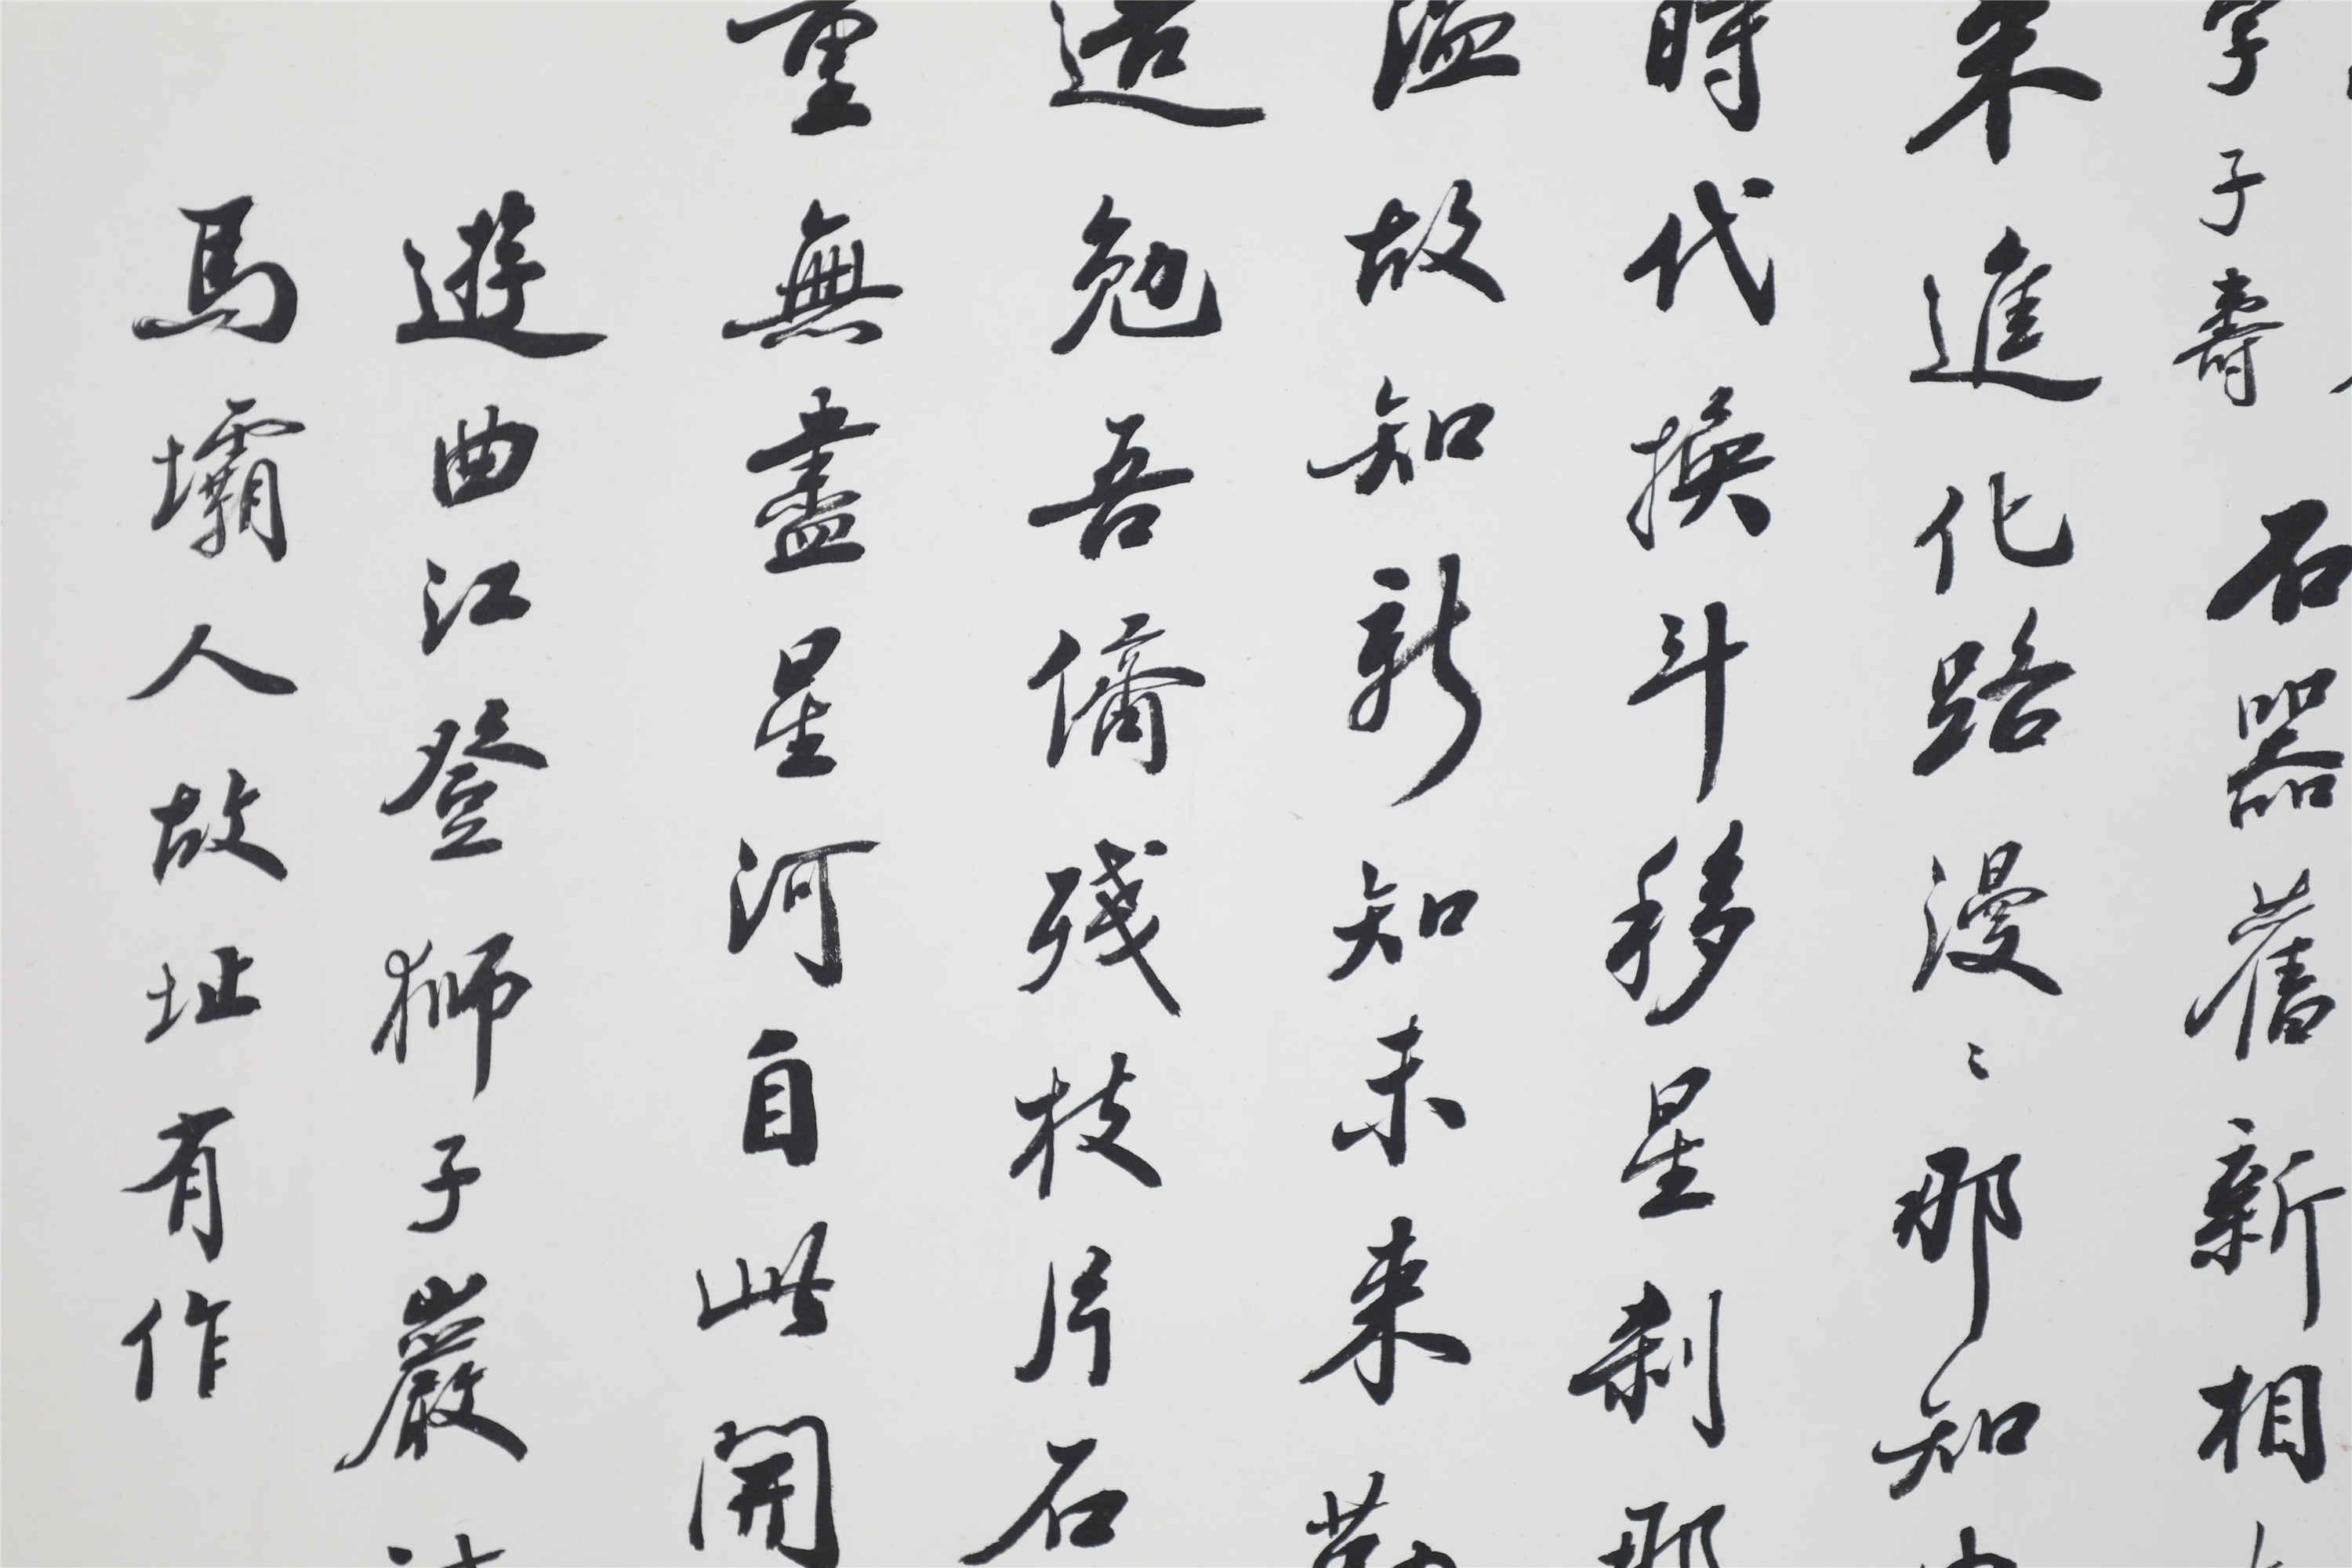 字子壽 石器舊新相
来進化路漫〻那知
時代換斗移星刹那
温故知新知未来勤
造勉吾儕残枝片石
重無盡星河自此開
遊曲江登獅子巖
馬壩人故址有作